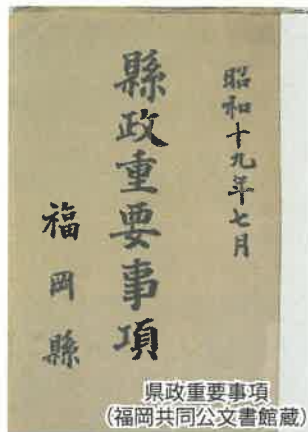 昭和十九年七月
縣政重要事項
福岡縣
県政重要事項
(福岡共同公文書館蔵)